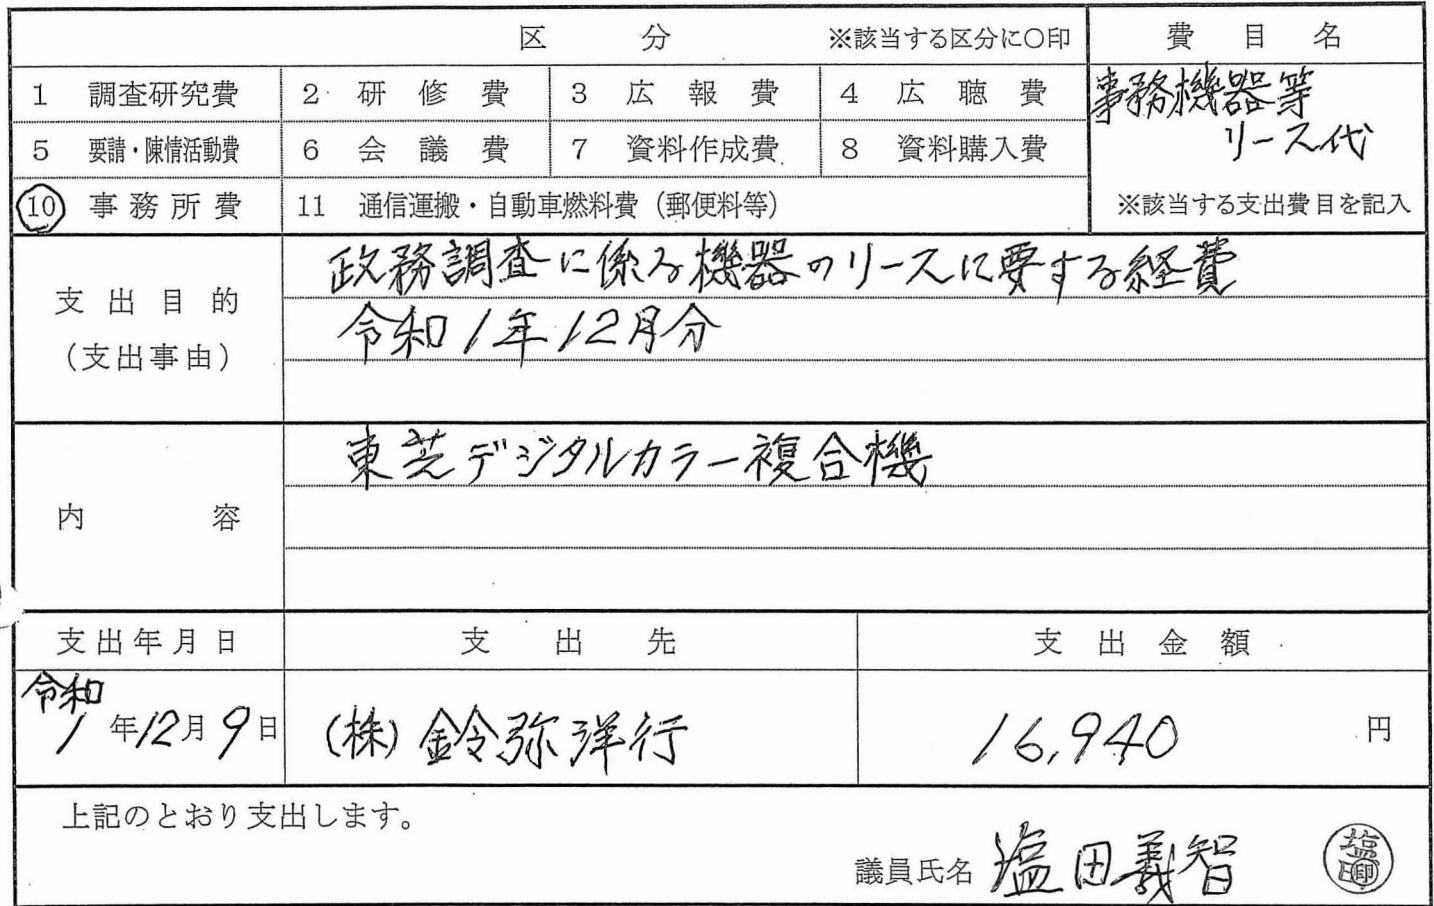 区 分 ※該当する区分に○印 費 目 名
1 調査研究費 2 研 修 費 3 広 報 費 4 広 聴 費 事務機器等
リース代
5 要請・陳情活動費 6 会 議 費 7 資料作成費 8 資料購入費
10 事 務 所 費 11 通信運搬・自動車燃料費（郵便料等） ※該当する支出費目を記入
支 出 目 的
（支出事由）
政務調査に係る機器のリースに要する経費
令和1年12月分
内 容
東芝デジタルカラー複合機
支出年月日 支 出 先 支 出 金 額
令和
1年12月9日 (株)鈴弥洋行 16,940 円
上記のとおり支出します。
議員氏名 塩田義智 塩田印